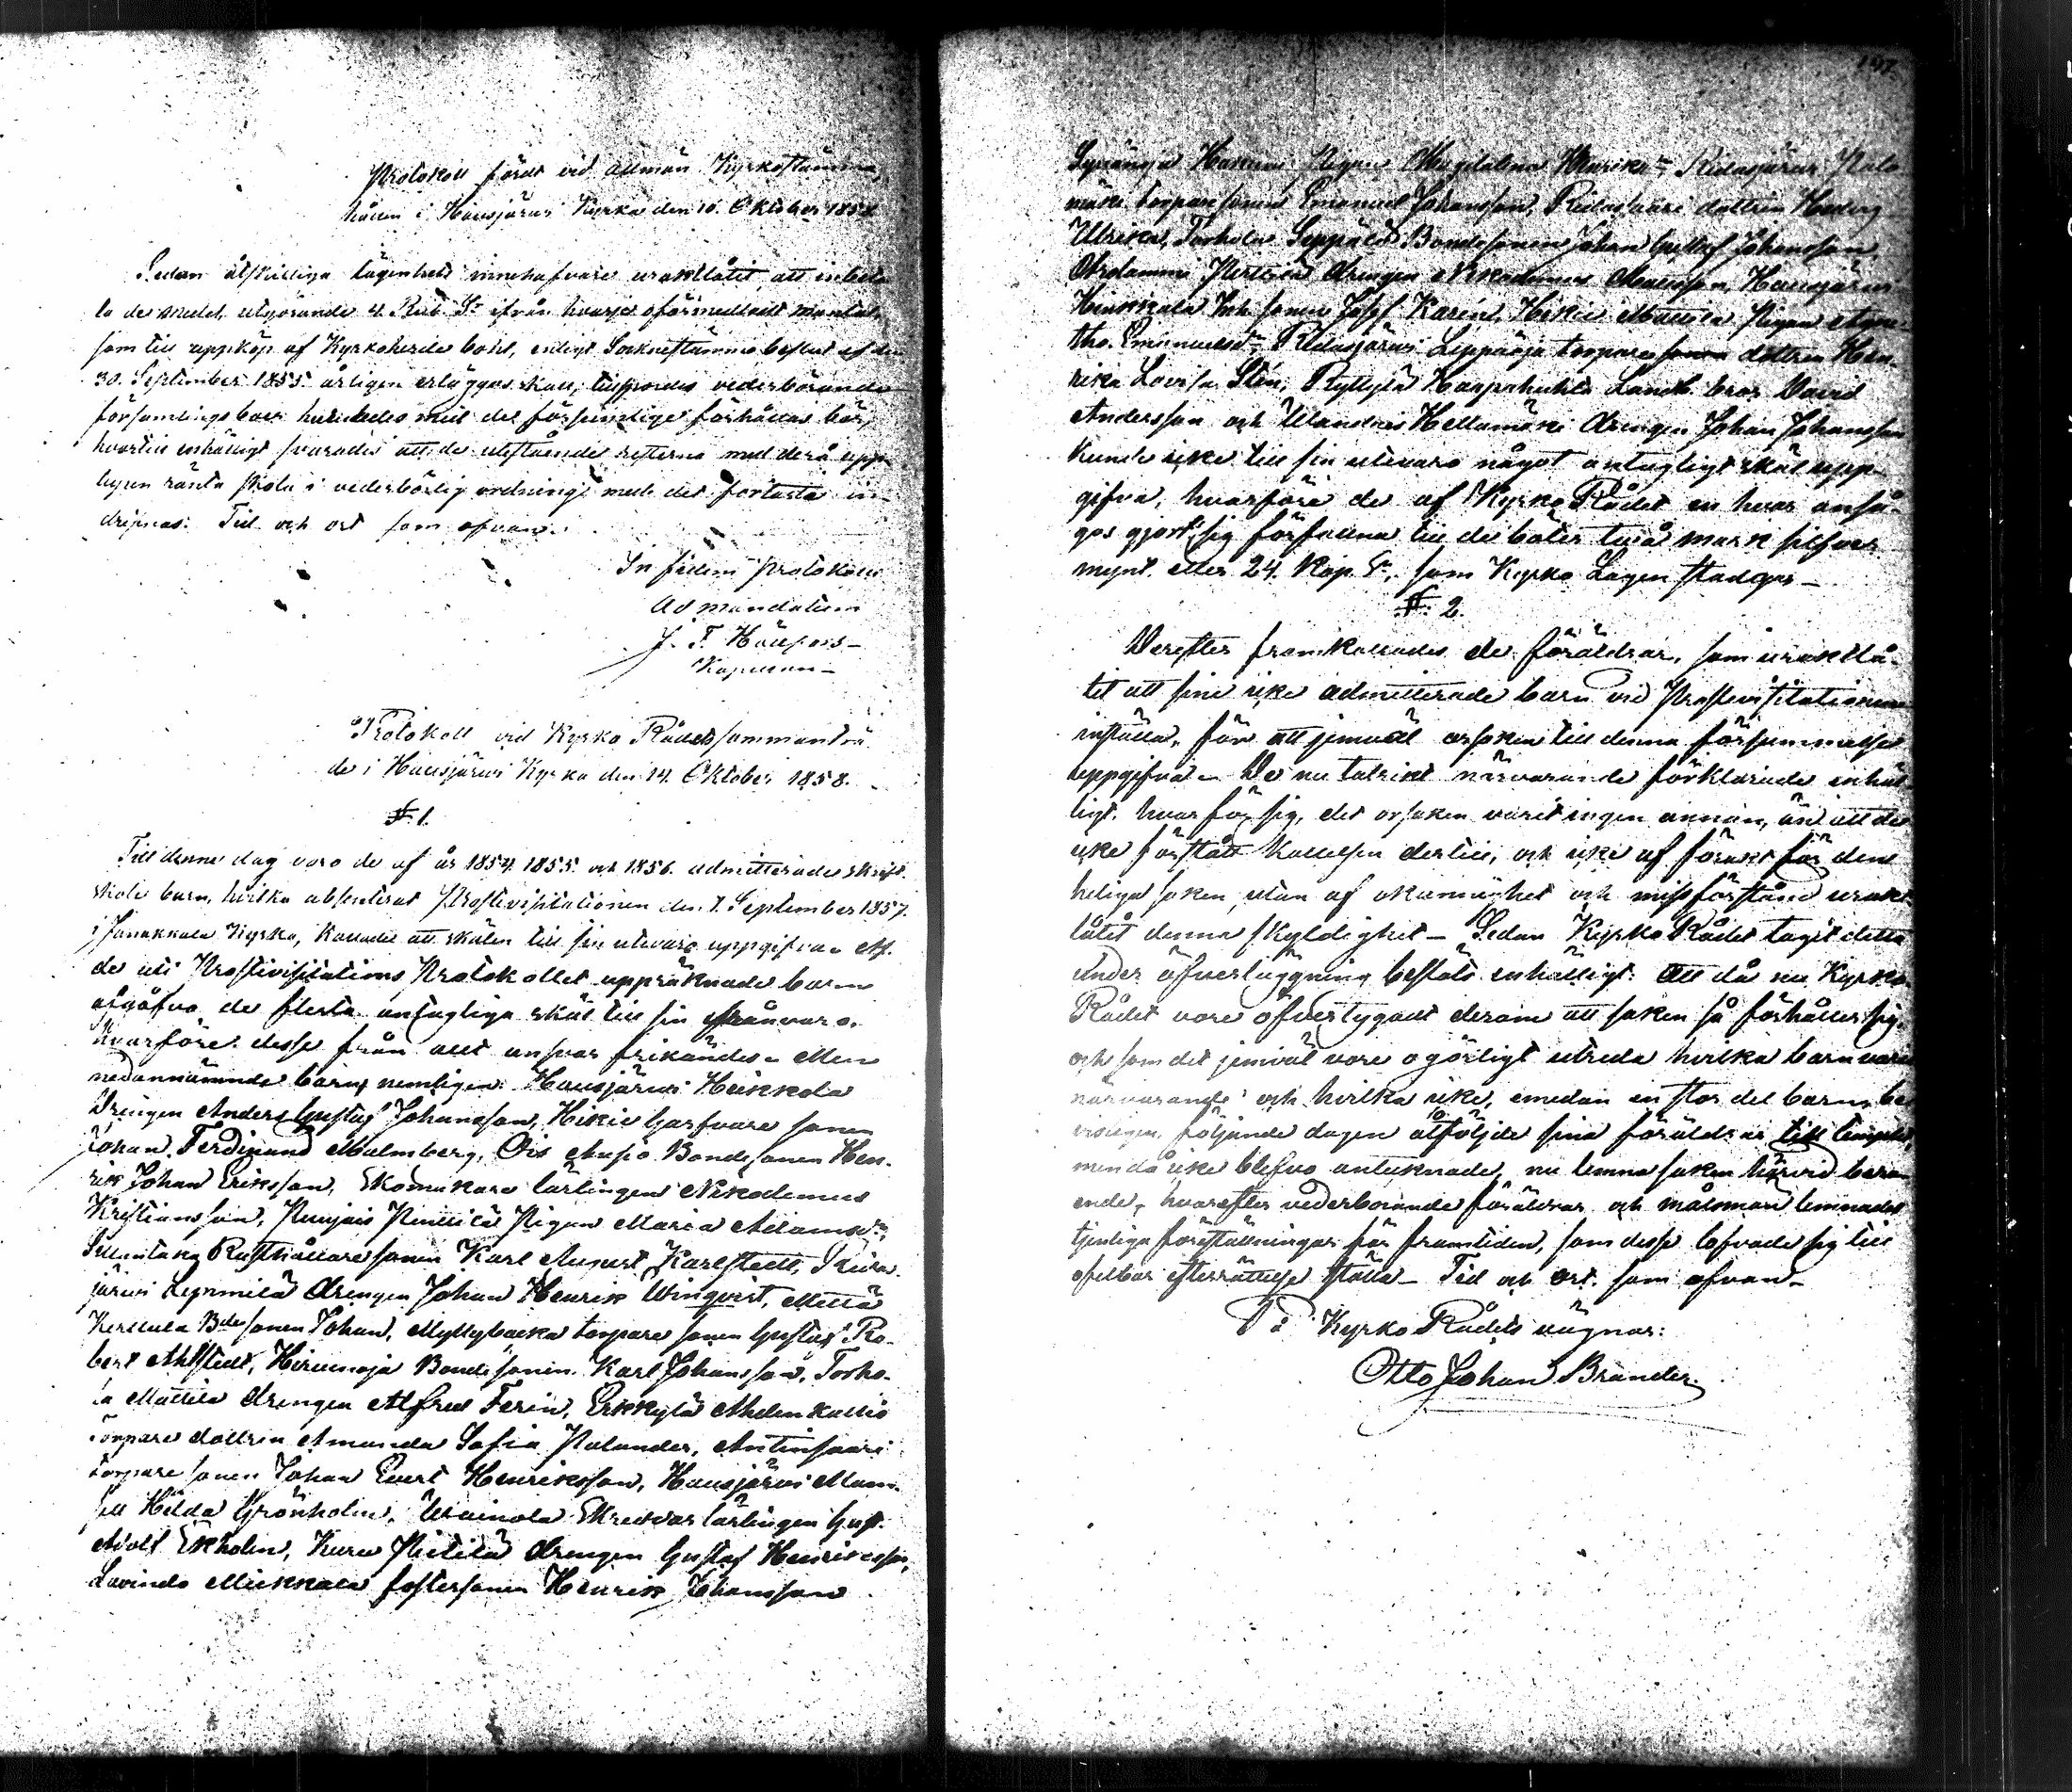 Protokoll fördt vid allmän Kyrkostämma,
hållen i Hausjärvi Kyrka den 10. Oktober 1858.
Sedan åtskillige lägenhets innehafvare uraktlåtit, att inbeta-
la de medel, utgörande 4. Rub. Sr ifrån hvarje oförmedladt mantal
som till uppköp af Kyrkoherde bohl, enligt Sockenstämmo beslut af den
30. September 1855 årligen erläggas skall, tillspordes vederbörande
församlingsboer huruledes med de försumlige förhållas bör,
hvartill enhälligt svarades att de utestående resterna med derå upp-
lupen ränta skola i vederbörlig ordning med det fortaste in-
drifvas. Tid och ort som ofvan.
In fidem protokolli
Ad mandatum
J. F.
Kapellan
Protokoll vid Kyrko Rådets sammanträ-
de i Hausjärvi Kyrka den 14. Oktober 1858.
§. 1.
Till denna dag voro de af år 1854. 1855. och 1856. admitterade skrift-
skole barn, hvilka absenterat Prostevisitationen den 7. September 1857.
i Janakkala Kyrka, kallade att skälen till sin utevaro uppgifva. Af
de uti Prostevisitations Protokollet uppräknade barn
uppgåfvo de flesta antagliga skäl till sin frånvaro.
Hvarföre desse från allt ansvar frikändes. Men
nedannämnde barn, nemligen: Hausjärvi Heikkola
Drengen Anders Gustaf Johansson, Hikiä Garfvare sonen
Johan Ferdinand Malmberg, Ois Aupio Bondesonen Hen-
rik Johan Eriksson, Skomakare lärlingen Nikodemus
Kristiansson, Puujais Penttilä Pigan Maria Adamsdr,
Rusthållare sonen Karl August Karlstedt,
järvi Lepmilä drengen Johan Henrik Winqvist, Mettä
Kerttula Bde sonen Johan, Myllybacka torpare sonen Gustaf Ro-
bert Ahlstedt, Hirvenoja Bonde sonen Karl Johansson, Torho-
la Mattila drengen Alfred Ferin, Erkkylä Ahdenkallio
torpare dottren Amanda Sofia Palander, Antinsaari
torpare sonen Johan Evert Henriksson, Hausjärvi Mam-
sell Hilda Grönholm, Skreddar lärlingen Gust.
Adolf Ekholm, Kuru Pietilä drengen Gustaf Henriksson,
Lavindo Mickkola fostersonen Henrik Johansson
197.
Hakum Pigan Magdalena Henriksdr Ridasjärvi Palo-
mäki torpare sonen Emanuel Johansson, Ridasjärvi dottren Hedvig
Ulrika, Torhola Seppälä Bondesonen Johan Gustaf Johansson,
Perttula drengen Nikodemus Mattsson, Hausjärvi
Heikkala Inh. sonen Josef Karén, Hikiä Mattila Pigan Aga-
tha Emanuelsdr, Ridasjärvi Leppäoja torpare dottren Hen-
rika Lovisa Stén, Ryttylä Haapahuhta Landb. bror David
Andersson och Hellamäki drengen Johan Johansson
kunde icke till sin utevaro något antagligt skäl upp-
gifva, hvarföre de af Kyrko Rådet en hvar anså-
gos gjort sig förfallna till de böter två mark silfver
mynt eller 24. Kop. Sr. som Kyrko Lagen stadgar –
§. 2.
Derefter framkallades de föräldrar, som uraktlå-
tit att sina icke admitterade barn vid Prostevisitationen
inställa, för att jemväl orsaken till denna försummelse
uppgifva – De nu talrikt närvarande förklarade enhäl-
ligt, hvar för sig, det orsaken varit ingen annan, än att de
icke förstått kallelsen dertill, och icke af förakt för den
heliga saken, utan af okunnighet och missförstånd urakt-
låtit denna skyldighet – Sedan Kyrko Rådet tagit detta
under öfverläggning beslöts enhälligt: Att då nu Kyrko
Rådet vore öfvertygadt derom att saken så förhåller sig,
och som det jemväl vore ogörligt utreda hvilka barn varit
närvarande och hvilka icke, emedan en stor del barn be-
visligen följande dagen åtföljde sina föräldrar till templet,
men då icke blefvo antecknade, nu lemna saken härvid bero-
ende, hvarefter vederbörande föräldrar och målsmän lemnades
tjenliga föreställningar för framtiden, som desse lofvade sig till
ofelbar efterrättelse ställa – Tid och ort som ofvan –
På Kyrko Rådets vägnar:
Otto Johan Brander.